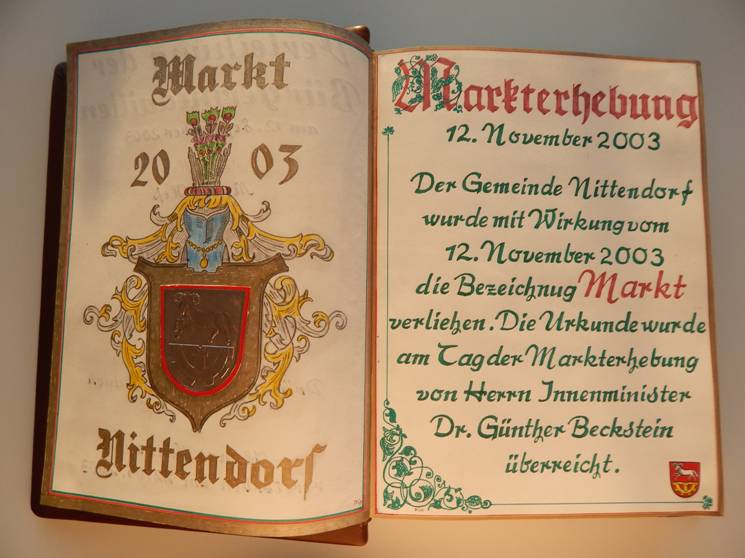 Markt
20 03
Nittendorf
Markterhebung
12. November 2003
Der Gemeinde Nittendorf
wurde mit Wirkung vom
12. November 2003
die Bezeichnug Markt
verliehen. Die Urkunde wurde
am Tag der Markterhebung
von Herrn Innenminister
Dr. Günther Beckstein
überreicht.